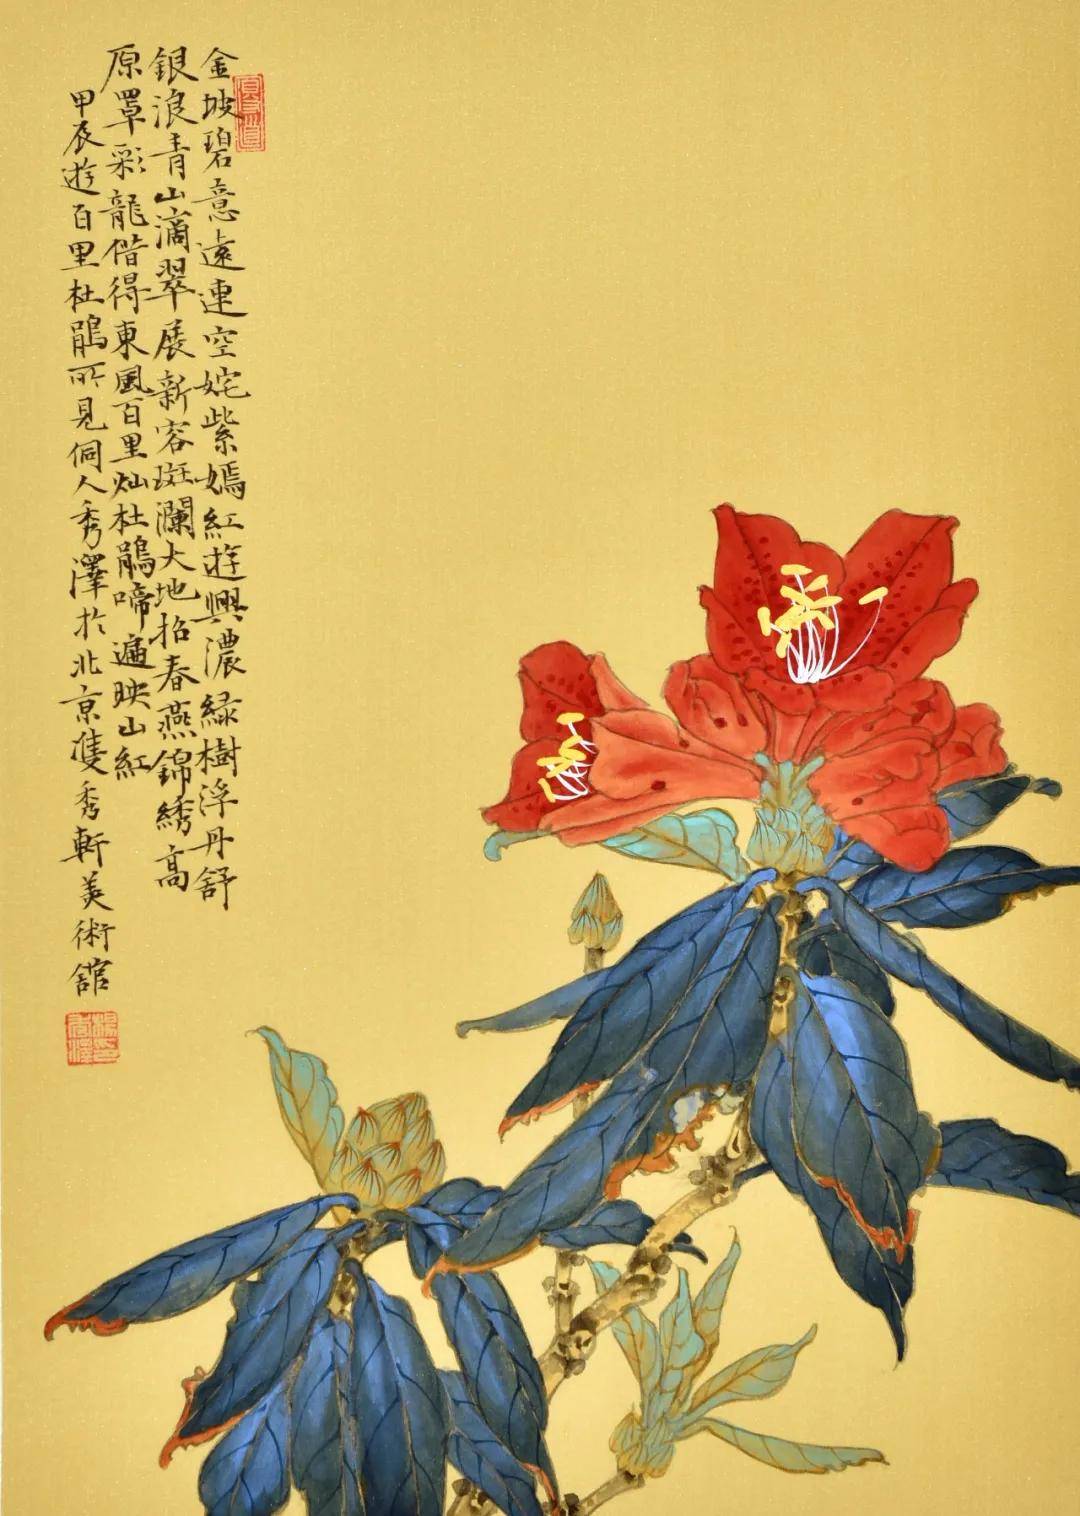 金坡碧意遠連空姹紫嫣紅遊興濃緑樹浮丹舒
銀浪青山滴翠展新容斑瀾大地招春燕錦綉高
原罩彩龍借得東風百里灿杜鵑啼遍映山紅
甲辰遊百里杜鵑所見侗人秀澤於北京雙秀軒美術館
楊秀澤印